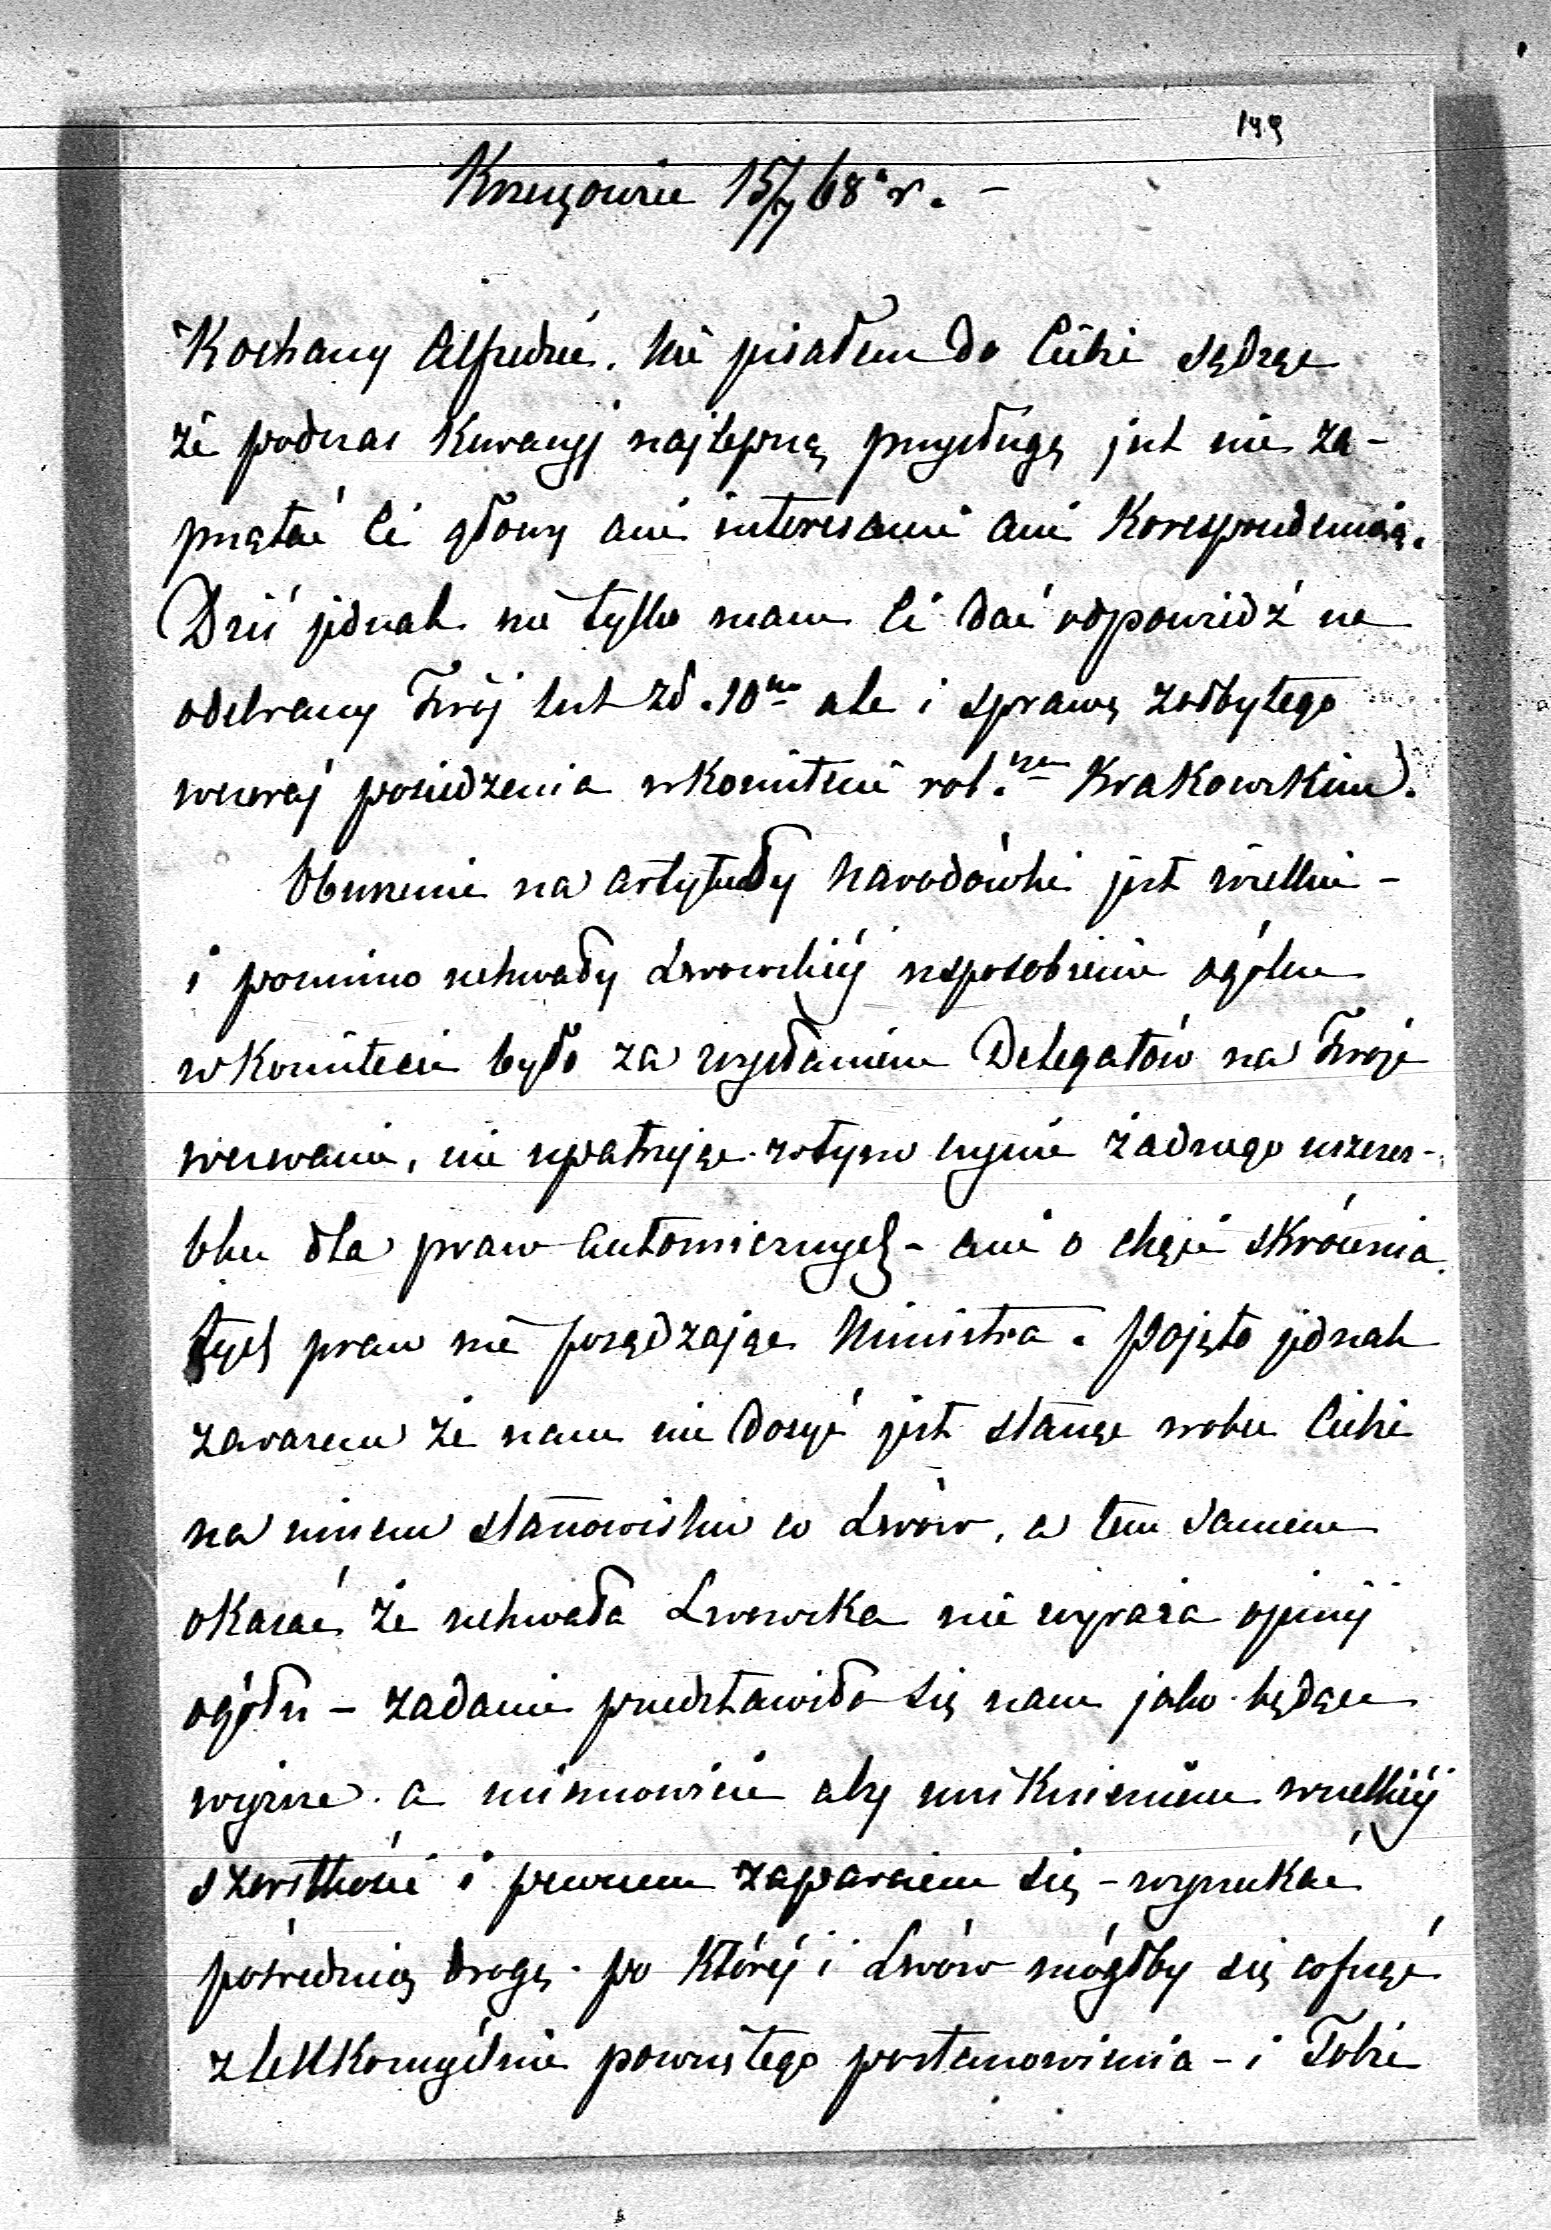 149
Krzeszowice 15/7 68 r. –
Kochany Alfredzie. Nie pisałem do Ciebie sądząc
że podczas Kuracyj najlepszą przysługą jest nie za-
prątać Ci głowy ani interesami ani Korespondencją.
Dziś jednak nie tylko mam Ci dać odpowiedź na
odebrany Twój list z d. 10no ale i sprawę z odbytego
wczoraj posiedzenia w Komitecie rol.nem Krakowskim.
Oburzenie na artykuły Narodówki jest wielkie –
i pomimo uchwały Lwowskiéj usposobienie ogólne
w Komitecie było za wysłaniem Delegatów na Twoje
wezwanie, nie upatrując w tym czynie żadnego uszczer-
bku dla praw autonomicznych – ani o chęć skrócenia
tych praw nie posądzając Ministra. Pojęto jednak
zarazem że nam nie dosyć jest stanąć wobec Ciebie
na innem stanowisku co Lwów, a tem samem
okazać że uchwała Lwowska nie wyraża opinij
ogółu – zadanie przedstawiło się nam jako będące
wyższe a mianowicie aby uniknieniem wszelkiéj
szorstkości i pewnem zaparciem się – wyszukać
pośrednią drogę po któréj i Lwów mógłby się cofnąć
z lekkomyślnie powziętego postanowienia – i Tobie